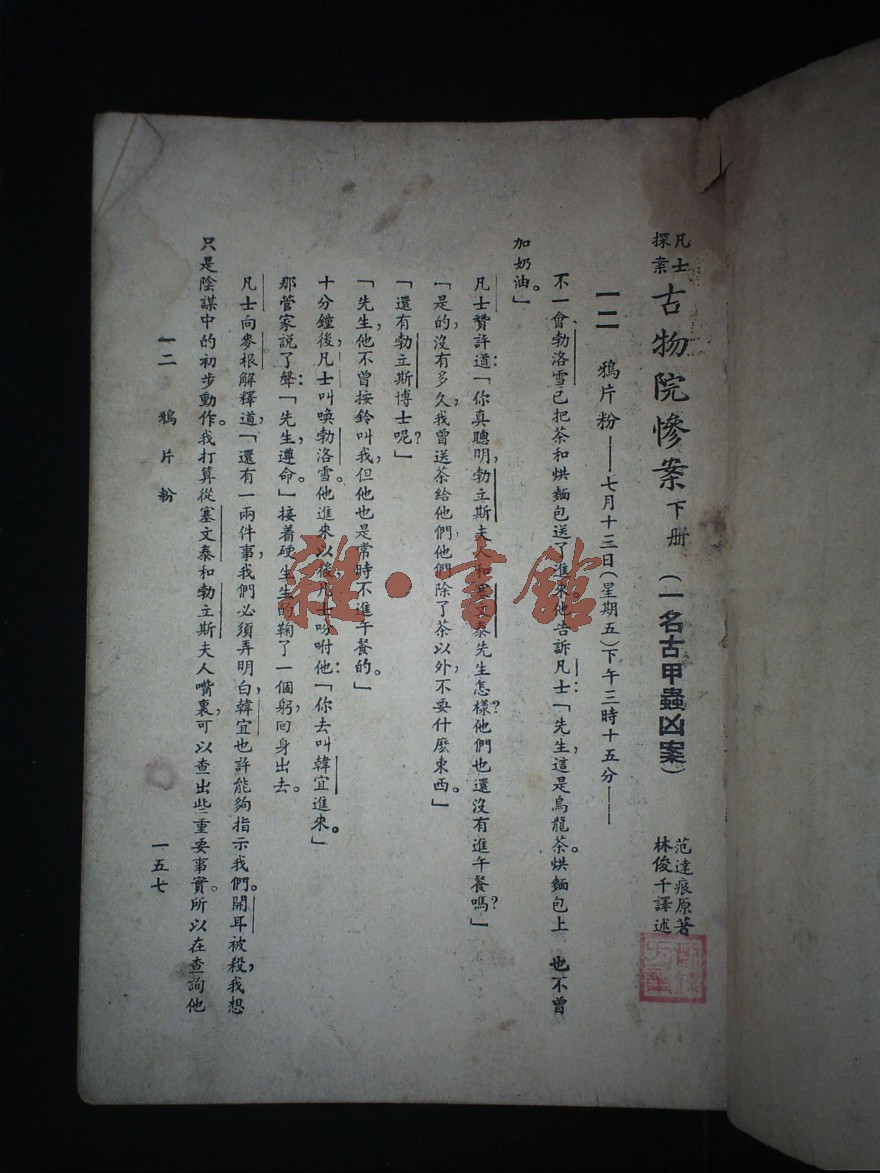 凡士探案 古物院慘案 下册 (一名古甲蟲凶案)
范達痕原著
林俊千譯述
一二 鴉片粉——七月十三日(星期五)下午三時十五分——
不一會、勃洛雪已把茶和烘麵包送了進來。他告訴凡士:「先生,這是烏龍茶。烘麵包上 也不曾
加奶油。」
凡士贊許道:「你真聰明,勃立斯夫人和塞文泰先生怎樣?他們也還沒有進午餐嗎?」
「是的,沒有多久,我曾送茶給他們,他們除了茶以外,不要什麽東西。」
「還有勃立斯博士呢?」
「先生,他不曾按鈴叫我,但他也是常時不進午餐的。」
十分鐘後,凡士叫喚勃洛雪。他進來以後,凡士吩咐他:「你去叫韓宜進來。」
那管家説了聲:「先生,遵命。」接着硬生生的鞠了一個躬,回身出去。
凡士向麥根解釋道,「還有一兩件事,我們必須弄明白,韓宜也許能夠指示我們。開耳被殺,我想
只是陰謀中的初步動作。我打算從塞文泰和勃立斯夫人嘴裏,可以查出些重要事實。所以在查詢他
一二 鴉片粉
一五七
雜·書館